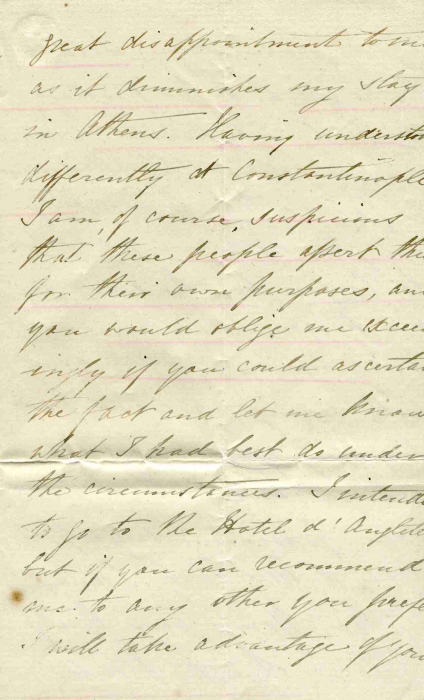 great disappointment to me
as it diminishes my stay
in Athens. Having understo
differently at Constantinople
I am, of course, suspicious
that these people assert thi
for their own purposes, an
you would oblige me excee
ingly if you could ascerta
the fact and let me know
what I had best do under
the circumstances. I intend
to go to the Hotel d'Anglete
but if you can recommend
me to any other you prefe
I will take advantage of you